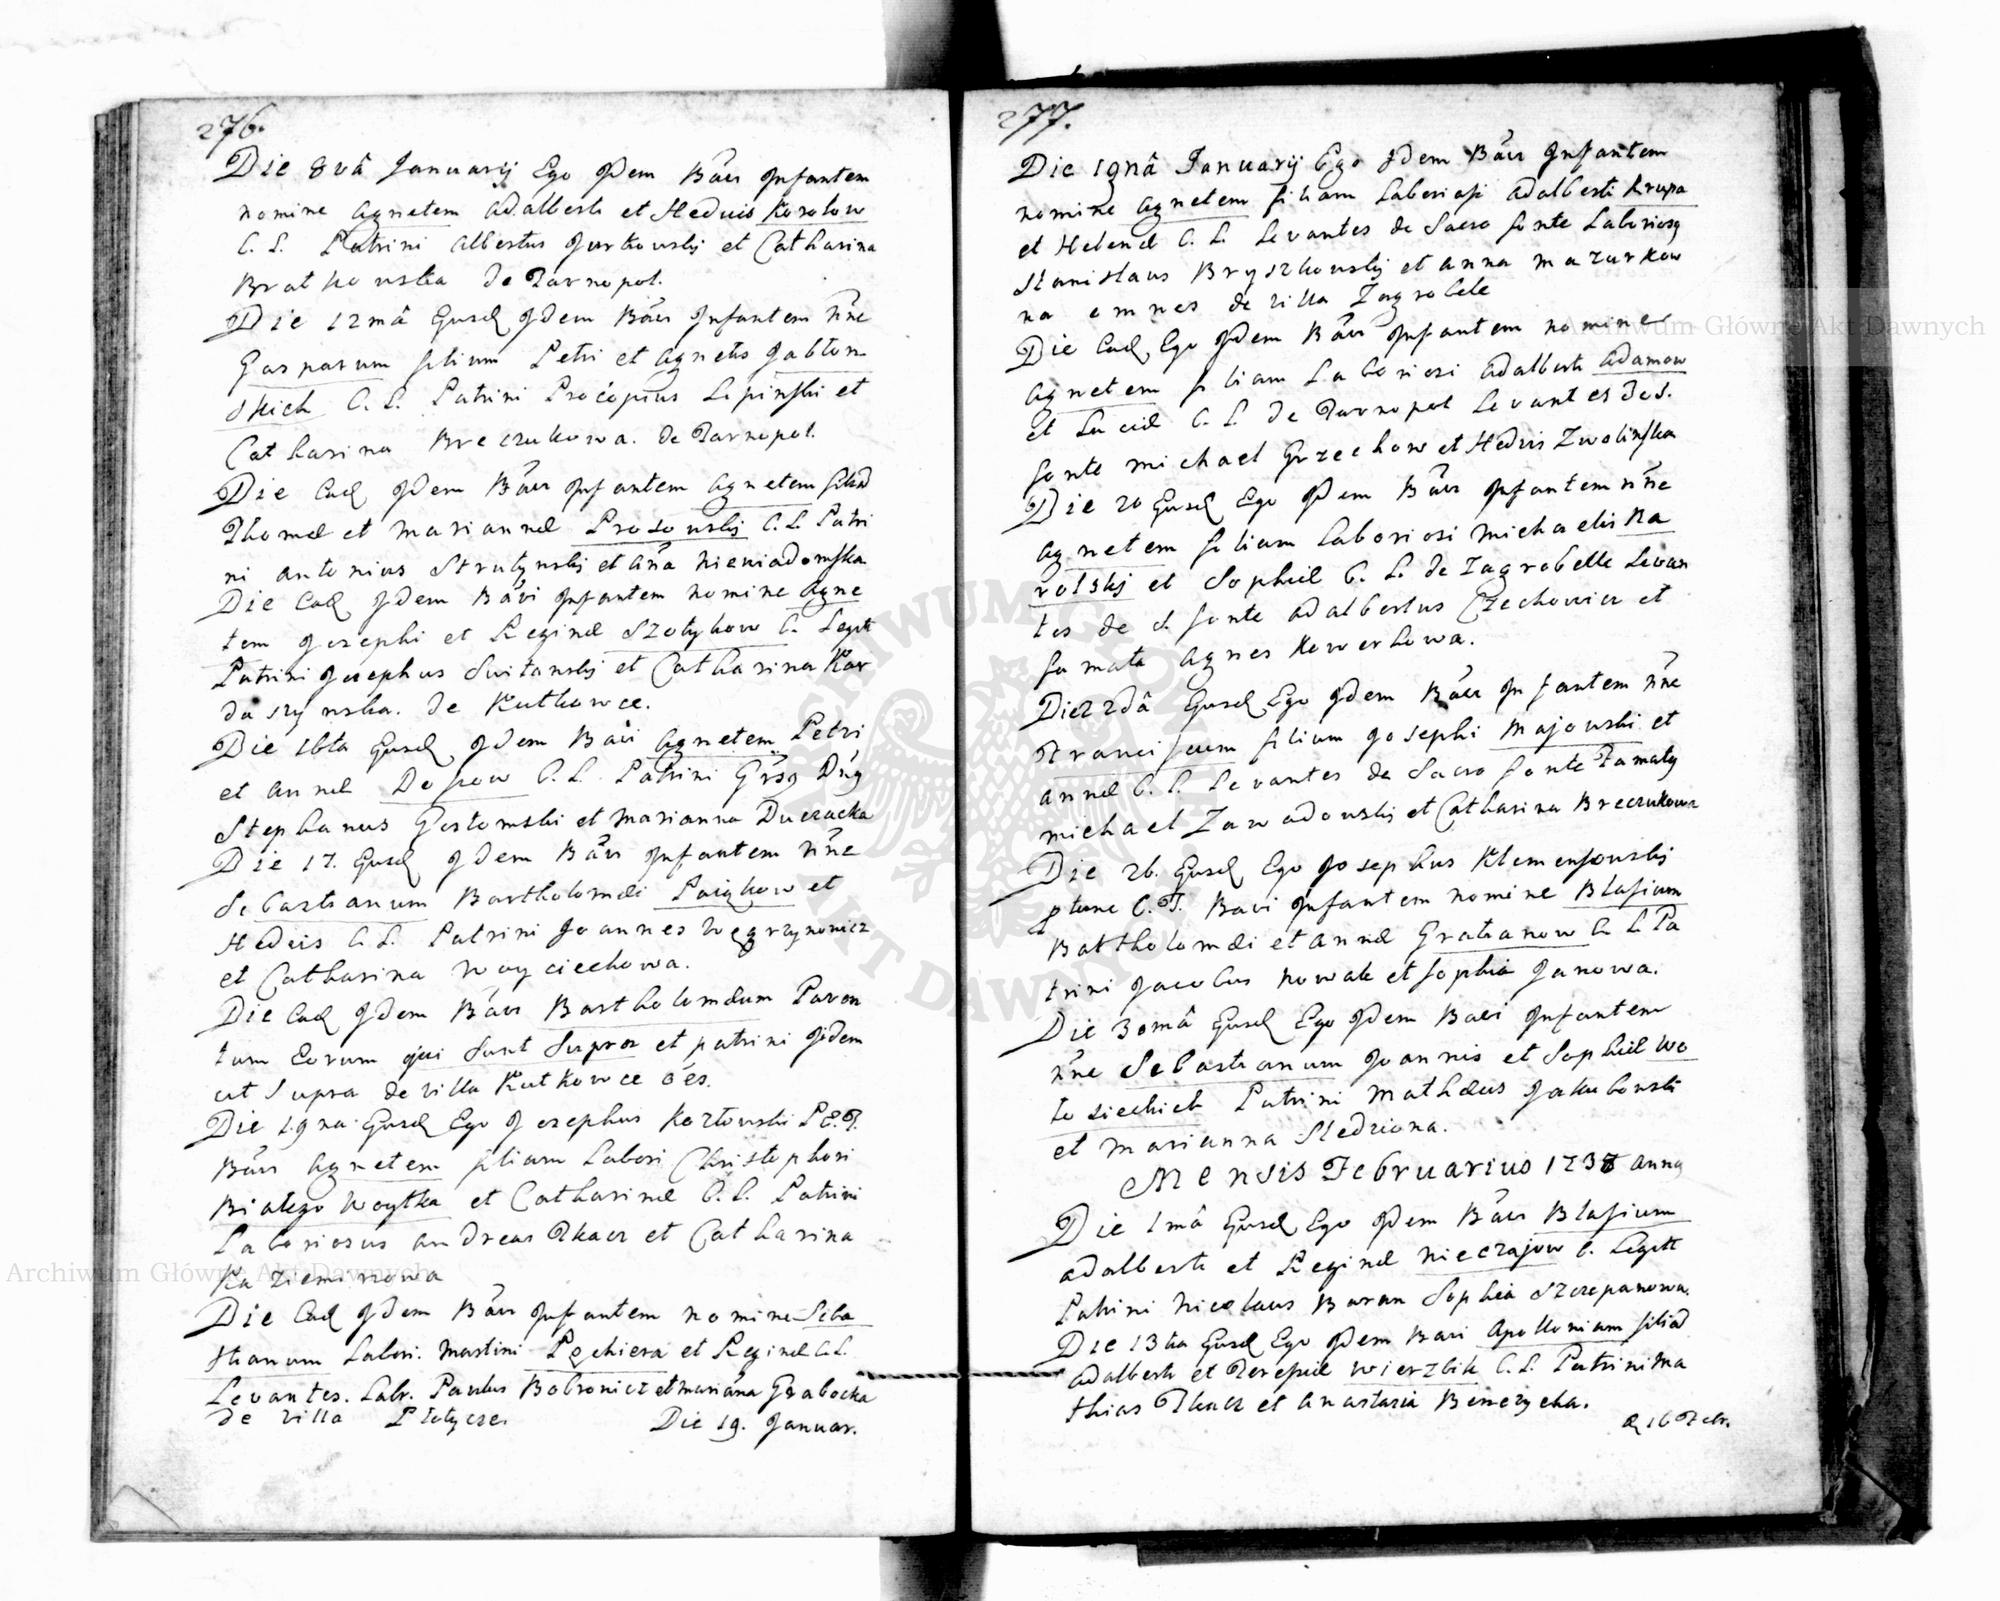 276.
Die 8vâ Januarij Ego Idem Bãvi Infantem
nomine Agnetem Adalberti et Hedvis Korolow
C. L. Patrini Albertus Jurkowskij et Catharina
Bratkowska de Tarnopol.
Die 12mâ Ejusd Idem Bãvi Infantem ñne
Gasparum filium Petri et Agnetis Jablon
skich C. L. Patrini Procópius Lipinski et
Catharina Breczukowa. de Tarnopol.
Die Ead Idem Bãvi Infantem Agnetem filiã
Thomæ et Mariannæ Prosowskij C. L. Patri
ni Antonius Strutynskij et Añа Nieniadomska
Die Ead Idem Bãvi Infantem nomine Agne
tem Josephi et Reginæ Szotykow C. Legit
Patrini Josephus Switanskij et Catharina Kor
daszynska. de Kutkowce.
Die 16ta Ejusd Idem Bãvi Agnetem Petri
et Annæ Dospow C. L. Patrini
Stephanus Gostomski et Marianna Duczacka
Die 17. Ejusd Idem Bãvi Infantem ñne
Sebastianum Bartholomæi et
Hedvis C. L. Patrini Joannes Węgrzynowicz
et Catharina Woyciechowa.
Die Ead Idem Bãvi Bartholomæum Paren
tum Eorum qui sunt supra et patrini Iidem
ut supra de villa Kutkowce oẽs.
Die 19na Ejusd Ego Josephus Kozlowski P. C. T.
Bãvi Agnetem filiam Labori Christophori
Bialego Woytka et Catharinæ C. L. Patrini
Laboriosus Andreas Tkacz et Catharina
Kaziemirzowa
Die Ead Idem Bãvi Infantem nomine Seba
stianum Labori. Martini Pęchiera et Reginæ C. L.
Levantes. Labr. Paulus Bobronicz et Mariãna Grabocka
de villa Płotycze. Die 19. Januar.
277.
Die 19nâ Januarij Ego Idem Bãvi Infantem
nomine Agnetem filiam Laboriosi Adalberti Krupa
et Helenæ C. L. Levantes de Sacro fonte Laboriosy
Stanislaus Bryszkowskij et Anna Mazurkow
na omnes de villa Zagrobele
Die Ead, Ego Idem Bãvi Infantem nomine
Agnetem filiam Laboriosi Adalberti Adamow
et Luciæ C. L. de Tarnopol Levantes de S.
fonte Michael Grzechow et Hedvis Zwolinska
Die 20 Ejusd Ego Idem Bãvi Infantem ñne
Agnetem filiam Laboriosi Michaelis Na
rolskij et Sophiæ C. L. de Zagrobelle Levan
tes de S. fonte Adalbertus Czechowicz et
famata Agnes Kowerkowa.
Die 22dâ Ejusd Ego Idem Bãvi Infantem ñne
Franciscum filium Josephi Majowski et
Annæ C. L. Levantes de Sacro fonte Famaty
Michael Zawadowskij et Catharina Breczukowa
Die 26. Ejusd Ego Josephus Klemensowskij
C. T. Bavi Infantem nomine Blasium
Bartholomæi et Annæ Gratianow C. L. Pa
trini Jacobus Nowak et Sophia Janowa.
Die 30mâ Ejusd Ego Idem Bavi Infantem
ñne Sebastianum Joannis et Sophiæ Wo
tosiechich Patrini Mathæus Jakubowski
et Marianna Sledziona.
Mensis Februarius 1738 Anny
Die 1mâ Ejusd Ego Idem Bãvi Blasium
Adalberti et Reginæ Nieczajow C. Legitt
Patrini Nicolaus Baran Sophia Szczepanowa.
Die 13tia Ejusd Ego Idem Bavi Apolloniam filiã
Adalberti et Teresiæ Wierzbik C. L. Patrini Ma
thias Tkacz et Anastazia Benezycha.
16 Febr.
Archiwum Główne Akt Dawnych
Archiwum Główne Akt Dawnych
ARCHIWUM GŁÓWNE AKT DAWNYCH